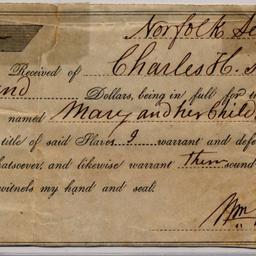 Norfolk Se
Received of Charles H.
Dollars, being in full for
named Mary and her Child
title of said Slaves I warrant and defe
hatsoever; and likewise warrant them sound
witness my hand and seal:
Wm